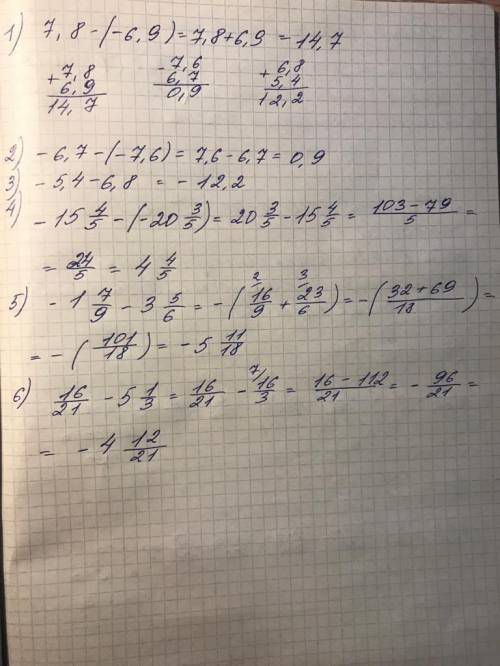 1) 7,8-(-6,9)=7,8+6,9=14,7
+7,8 -7,6 +6,8
6,9 6,7 5,4
14,7 0,9 12,2
2) -6,7-(-7,6)=7,6-6,7=0,9
3) -5,4-6,8 = -12,2
4) -15 4/5 -(-20 3/5)= 20 3/5 -15 4/5 = (103-79)/5 =
= 24/5 = 4 4/5
5) -1 7/9 -3 5/6 = -(16/9 2 + 23/6 3)= -((32+69)/18) =
= -(101/18) = -5 11/18
6) 16/21 -5 1/3 = 16/21 - 16/3 7 = (16-112)/21 = -96/21 =
= -4 12/21